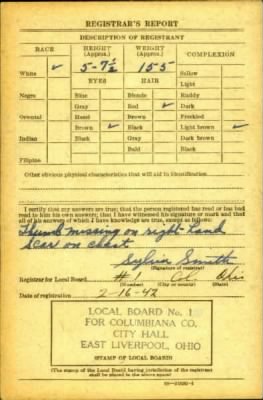 REGISTRAR'S REPORT
DESCRIPTION OF REGISTRANT
RACE HEIGHT (Approx.) WEIGHT (Approx.) COMPLEXION
White ✓ 5-7½ 155 Sallow
Light
EYES HAIR
Negro Blue Blonde Ruddy
Gray Red ✓ Dark
Oriental Hazel Brown Freckled
Brown ✓ Black Light brown ✓
Indian Black Gray Dark brown
Bald Black
Filipino
Other obvious physical characteristics that will aid in identification
I certify that my answers are true; that the person registered has read or has had
read to him his own answers; that I have witnessed his signature or mark and that
all of his answers of which I have knowledge are true, except as follows:
Thumb missing on right hand
Scar on chest
Sylvia Smith
(Signature of registrar)
Registrar for Local Board #1 Col. Ohio
(Number) (City or county) (State)
Date of registration 2-16-42
LOCAL BOARD No. 1
FOR COLUMBIANA CO.
CITY HALL
EAST LIVERPOOL, OHIO
(STAMP OF LOCAL BOARD)
(The stamp of the Local Board having jurisdiction of the registrant
shall be placed in the above space)